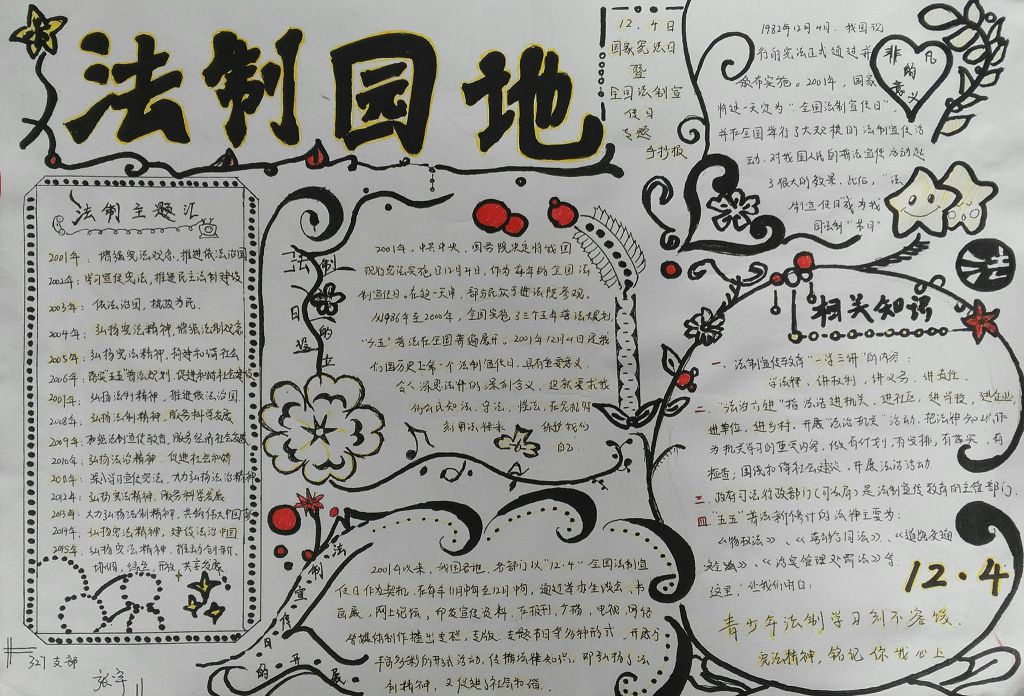 法制园地
12.4日
国家宪法日
暨
全国法制宣
传日
专题
手抄报
1982年12月4日，我国现
行的宪法正式通过并
颁布实施。2001年，国家
将这一天定为“全国法制宣传日”，
并在全国举行了大规模的法制宣传活
动，对我国人民的普法宣传活动起
了很大的效果，此后，“法
制宣传日”成为我
国法制“节日”
非凡
的
意义
法制主题汇
2001年：增强宪法观念，推进依法治国
2002年：学习宣传宪法，推进民主法制建设
2003年：依法治国，执政为民
2004年：弘扬宪法精神，增强法制观念
2005年：弘扬宪法精神，构建和谐社会
2006年：落实“五五”普法规划，促进和谐社会建设
2007年：弘扬法治精神，推进依法治国
2008年：弘扬法制精神，服务科学发展
2009年：加强法制宣传教育，服务经济社会发展
2010年：弘扬法治精神，促进社会和谐
2011年：深入学习宣传宪法，大力弘扬法治精神
2012年：弘扬宪法精神，服务科学发展
2013年：大力弘扬法治精神，共筑伟大中国梦
2014年：弘扬宪法精神，建设法治中国
2015年：弘扬宪法精神，推动创新、
协调、绿色、开放、共享发展
327支部
张宇
法制
日的
设立
2001年，中共中央、国务院决定将我国
现行宪法实施日12月4日，作为每年的全国法
制宣传日。在这一天中，部分民众会进法院参观。
从1986年至2000年，全国实施了三个五年普法规划，
“五五”普法在全国普遍展开。2001年12月4日是我
们国历史上第一个法制宣传日，具有重要意义，
自己。
法制
宣传日
的开展
2001年以来，我国各地、各部门以“12·4”全国法制宣
传日作为契机，在每年11月中旬至12月中旬，通过举办
画展，网上论坛，印发宣传资料，在报刊、广播、电视、网络
等媒体制作播出专栏、专版、专题节目等多种形式，开展了
丰富多彩的
制精神，又促进了社会和谐。
相关知识
一、法制宣传教育“一学三讲”的内容：
学法律，讲权利，讲义务，讲责任。
二、“法治六进”指法治进机关、进社区、进学校、进企业、
进单位、进乡村。开展“法治机关”活动，把法律知识作
为机关学习的重要内容，做有计划，有安排，有落实，有
检查；围绕和谐社会建设，开展法治活动
三、政府司法行政部门（司法局）是法制宣传教育的主管部门。
四、“五五”普法新修订的法律主要为：
《物权法》、《劳动合同法》、《道路交通
安全法》、《治安管理处罚法》等
这里，让我们明白：
12.4
青少年法制学习刻不容缓，
宪法精神，铭记你我心上